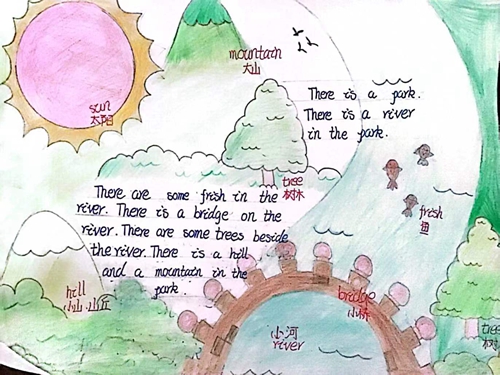 mountain
大山
sun
太阳
There is a park.
There is a river
in the park.
tree
树木
There are some frish in the
river. There is a bridge on the
river. There are some trees beside
the river. There is a hill
and a mountain in the
park.
frish
鱼
hill
小山 山丘
bridge
小桥
小河
river
tree
树